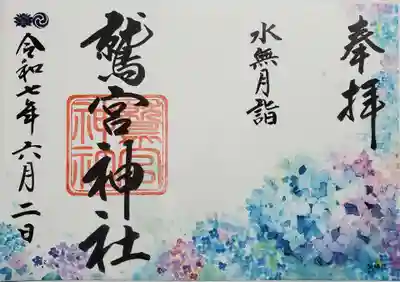 奉拝
水無月詣
鷲宮神社
鷲宮神社
令和七年六月二日